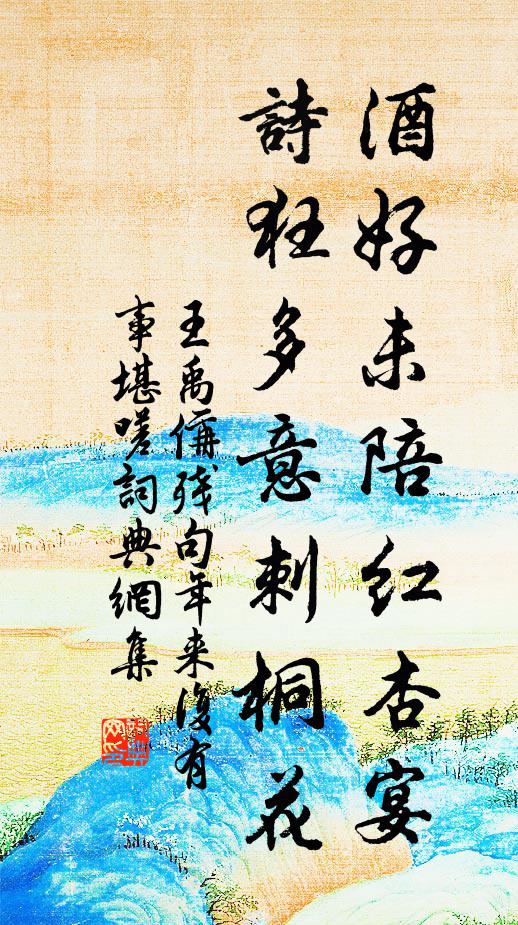 酒好未陪红杏宴
詩狂多意刺桐花
王禹偁残句年来復有
事堪嗟詞典網集